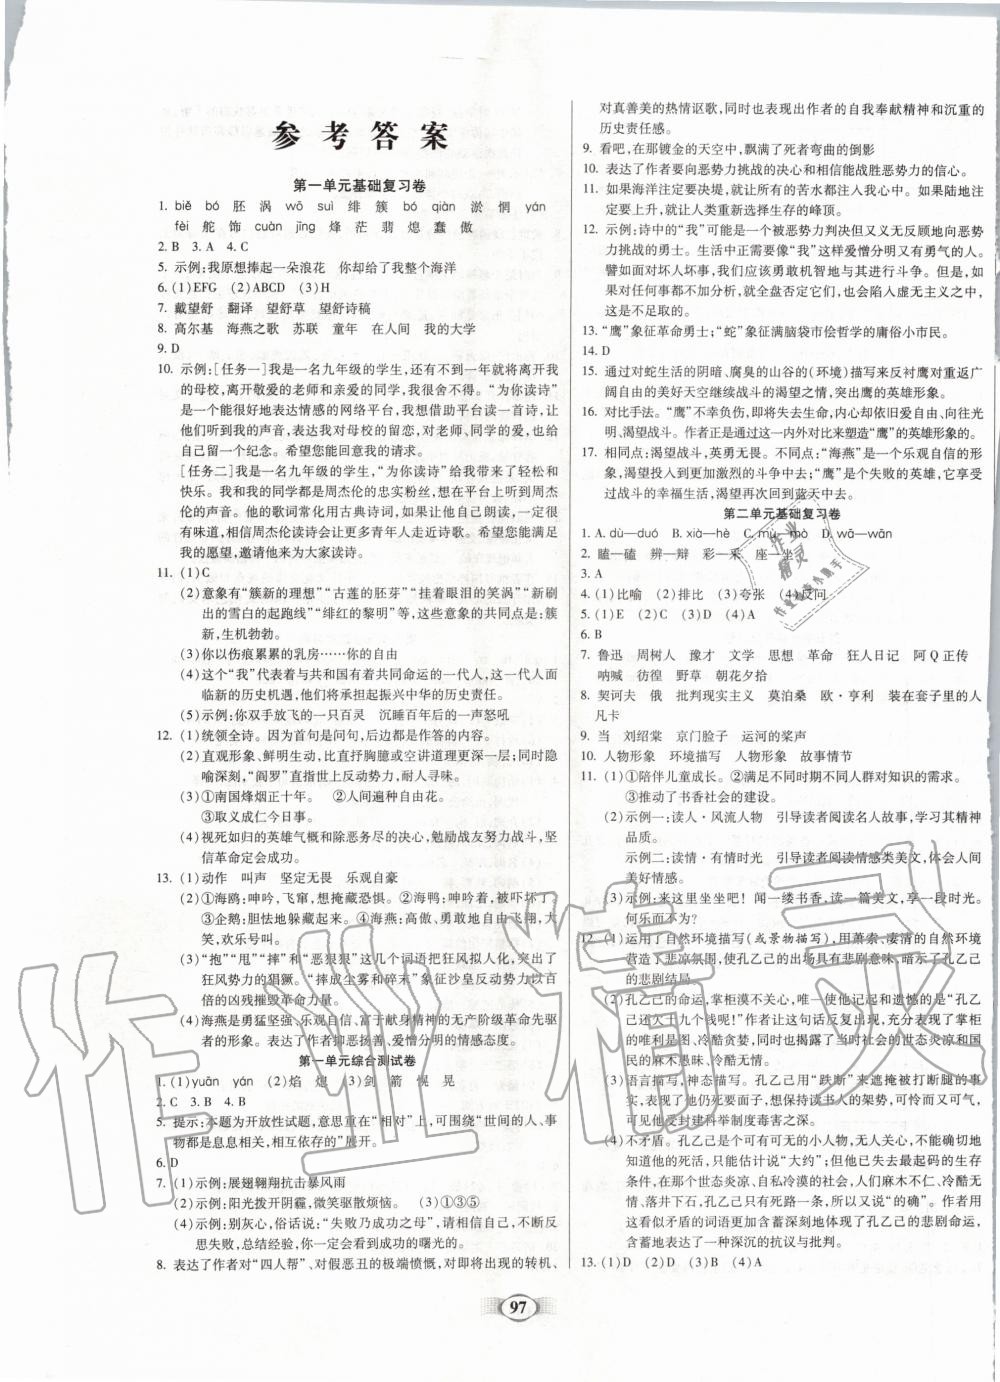 参考答案
第一单元基础复习卷
1. biě bó 胚 涡 wō suì 绯 簇 bó qiàn 淤 惘 yán
fèi 舵 饰 cuàn jīng 烽 茫 翡 熄 蠢 傲
2. B 3. A 4. C
5. 示例:我原想捧起一朵浪花 你却给了我整个海洋
6. (1)EFG (2)ABCD (3)H
7. 戴望舒 翻译 望舒草 望舒诗稿
8. 高尔基 海燕之歌 苏联 童年 在人间 我的大学
9. D
10. 示例:[任务一]我是一名九年级的学生,还有不到一年就将离开我
的母校,离开敬爱的老师和亲爱的同学,我很舍不得。“为你读诗”
是一个能很好地表达情感的网络平台,我想借助平台读一首诗,让
他们听到我的声音,表达我对母校的留恋,对老师、同学的爱,也给
自己留一个纪念。希望您能回意我的请求。
[任务二]我是一名九年级的学生,“为你读诗”给我带来了轻松和
快乐。我和我的同学都是周杰伦的忠实粉丝,想在平台上听到周杰
伦的声音。他的歌词常用古典诗词,大家都喜欢听,读起来一定很
有味道,相信周杰伦读诗会让更多青年人走近诗歌。希望您能满足
我的愿望,邀请他来为大家读诗。
11. (1)C
(2)意象有“簇新的理想”“古莲的胚芽”“挂着眼泪的笑涡”“新刷
出的雪白的起跑线”“绯红的黎明”等,这些意象的共同点是:簇
新,生机勃勃。
(3)你以伤痕累累的乳房……你的自由
(4)这个“我”代表着与共和国有着共同命运的一代人,这一代人面
临新的历史机遇,他们将承担起振兴中华的历史责任。
(5)示例:你双手放飞的一只百灵 沉睡百年后的一声怒吼
12. (1)统领全诗。因为首句是问句,后边都是作答的内容。
(2)直观形象、鲜明生动,比直抒胸臆或空讲道理更深一层;同时隐
喻深刻,“阎罗”直指世上反动势力,耐人寻味。
(3)①南国烽烟正十年。 ②人间遍种自由花。
③取义成仁今日事。
(4)视死如归的英雄气概和除恶务尽的决心,勉励战友努力战斗,坚
信革命定会成功。
13. (1)动作 叫声 坚定无畏 乐观自豪
(2)①海鸥:呻吟,飞窜,想掩藏恐惧。②海鸭:呻吟着,被吓坏了。
③企鹅:胆怯地躲藏起来。④海燕:高傲、勇敢地自由飞翔,大
笑,欢乐号叫。
(3)“抱”“甩”“摔”和“恶狠狠”这几个词语把狂风拟人化,突出了
狂风势力的猖獗。“摔成尘雾和碎末”象征沙皇反动统治势力
的凶残摧毁革命力量。
(4)海燕是勇猛坚强、乐观自信、富于献身精神的无产阶级革命先驱
者的形象。表达了作者爱憎分明的情感态度。
第一单元综合测试卷
1. (1)yuān yán (2)焰 炮 (3)剑 箭 幌 晃
2. C 3. B 4. B
5. 提示:本题为开放性试题,意思重在“相对”上,可围绕“世间的人、事
物都是息息相关,相互依存的”展开。
6. D
7. (1)示例:展翅翱翔抗击暴风雨
(2)示例:阳光拨开阴霾,微笑驱散烦恼。 (3)①③⑤
(4)示例:别灰心,俗话说:“失败乃成功之母”,希望你鼓起勇气,不断反
思失败,总结经验,你一定会看到成功的曙光的。
8. 表达了作者对“四人帮”、对假恶丑的极端愤慨,对即将出现的转机、
对真善美的热情讴歌,同时也表现出作者的自我奉献精神和沉重的
历史责任感。
9. 看吧,在那镀金的天空中,飘满了死者弯曲的倒影
10. 表达了作者要向恶势力挑战的决心和相信能战胜恶势力的信心。
11. 如果海洋注定要决堤,就让所有的苦水都注入我心中。如果陆地注
定要上升,就让人类重新选择生存的峰顶。
12. 示例:诗中的“我”可能是一个被恶势力判决但又义无反顾地向恶势
力挑战的勇士。生活中正需要像“我”这样爱憎分明又有勇气的人。
譬如面对坏人坏事,我们应该勇敢机智地与其进行斗争。但是,如
果对任何事都不加分析,就全盘否定它们,也会陷人虚无主义之中,
这是不足取的。
13. “鹰”象征革命勇士;“蛇”象征满脑袋市侩哲学的庸俗小市民。
14. D
15. 通过对蛇生活的阴暗、腐臭的山谷的(环境)描写来反衬鹰对重返广
阔自由的美好天空继续战斗的渴望之情,突出鹰的英雄形象。
16. 对比手法。“鹰”不幸负伤,即将失去生命,内心却依旧爱自由、向往光
明、渴望战斗。作者正是通过这一内外对比来塑造“鹰”的英雄形象的。
17. 相同点:渴望战斗,英勇无畏。不同点:“海燕”是一个乐观自信的英
雄形象,渴望到更加激烈的斗争中去;“鹰”是个失败的英雄,它享受
过战斗的幸福生活,渴望再次回到蓝天中去。
第二单元基础复习卷
1. A. dù—duó B. xià—hè C. mú—mò D. wā—wān
2. 瞌—磕 辨—辩 彩—采 座—坐
3. A
4. (1)比喻 (2)排比 (3)夸张 (4)反问
5. (1)E (2)C (3)D (4)A (5)B
6. B
7. 鲁迅 周树人 豫才 文学 思想 革命 狂人日记 阿Q正传
呐喊 彷徨 野草 朝花夕拾
8. 契诃夫 俄 批判现实主义 莫泊桑 欧·亨利 装在套子里的人
凡卡
9. 当 刘绍棠 京门脸子 运河的桨声
10. 人物形象 环境描写 人物形象 故事情节
11. (1)①陪伴儿童成长。②满足不同时期不同人群对知识的需求。
③推动了书香社会的建设。
(2)示例一:读人·风流人物 引导读者阅读名人故事,学习其精神
品质。
示例二:读情·有情时光 引导读者阅读情感类美文,体会人间
美好情感。
(3)示例:来这里坐坐吧!闻一缕书香,读一篇美文,享一刻安宁,
何乐而不为?
12. (1)运用了自然环境描写(或景物描写),用萧索、凄清的自然环境
营造了悲凉氛围,使本段内容具有悲剧意味,暗示了孔乙己的
悲剧结局。
(2)孔乙己的命运,掌柜漠不关心,唯一使他记起和遗憾的是“孔乙
己还欠十九个钱呢!”作者让这句话反复出现,充分表现了掌柜
的唯利是图、冷酷贪婪,同时也揭露了当时社会的世态炎凉和国
民的麻木愚昧、冷酷无情。
(3)语言描写,神态描写。孔乙己用“跌断”来遮掩被打断腿的事实,
表现了他仍死要面子,想要保持读书人的架势,可怜而又可气,
可见他受封建科举制度毒害之深。
(4)不矛盾。孔乙己是个可有可无的小人物,无人关心,不能确切地
知道他的死活,只能估计说“大约”;但当他丧失了最起码的生存
条件,在那个世态炎凉、冷漠的社会,人们麻木不仁、冷酷无
情、落井下石,孔乙己只有死路一条,所以又说“的确”。作者用
这看似矛盾的词语更加含蓄深刻地体现了孔乙己的悲剧命运,
含蓄地表达了一种深沉的抗议与批判。
13. (1)D (2)D (3)B (4)A
97
作业精灵
作业精灵
作业检查小帮手